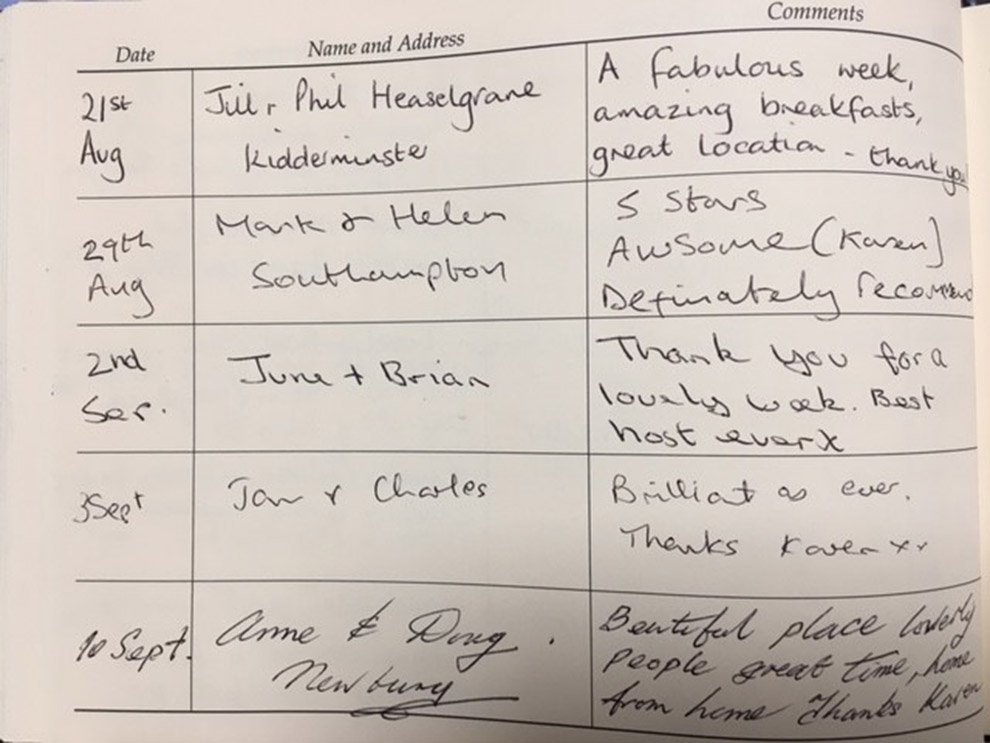 Date Name and Address Comments
21st Jill + Phil Heaselgrave A fabulous week,
Aug Kidderminster amazing breakfasts,
great location - thank you
29th Mark & Helen 5 Stars
Aug Southampton Awsome (Karen)
Definately recommend
2nd June + Brian Thank you for a
Sep. lovely week. Best
host ever x
3Sept Jan + Charles Brilliat as ever.
Thanks Karen xx
10 Sept. Anne & Doug . Beautiful place lovely
Newbury People great time, home
from home Thanks Karen